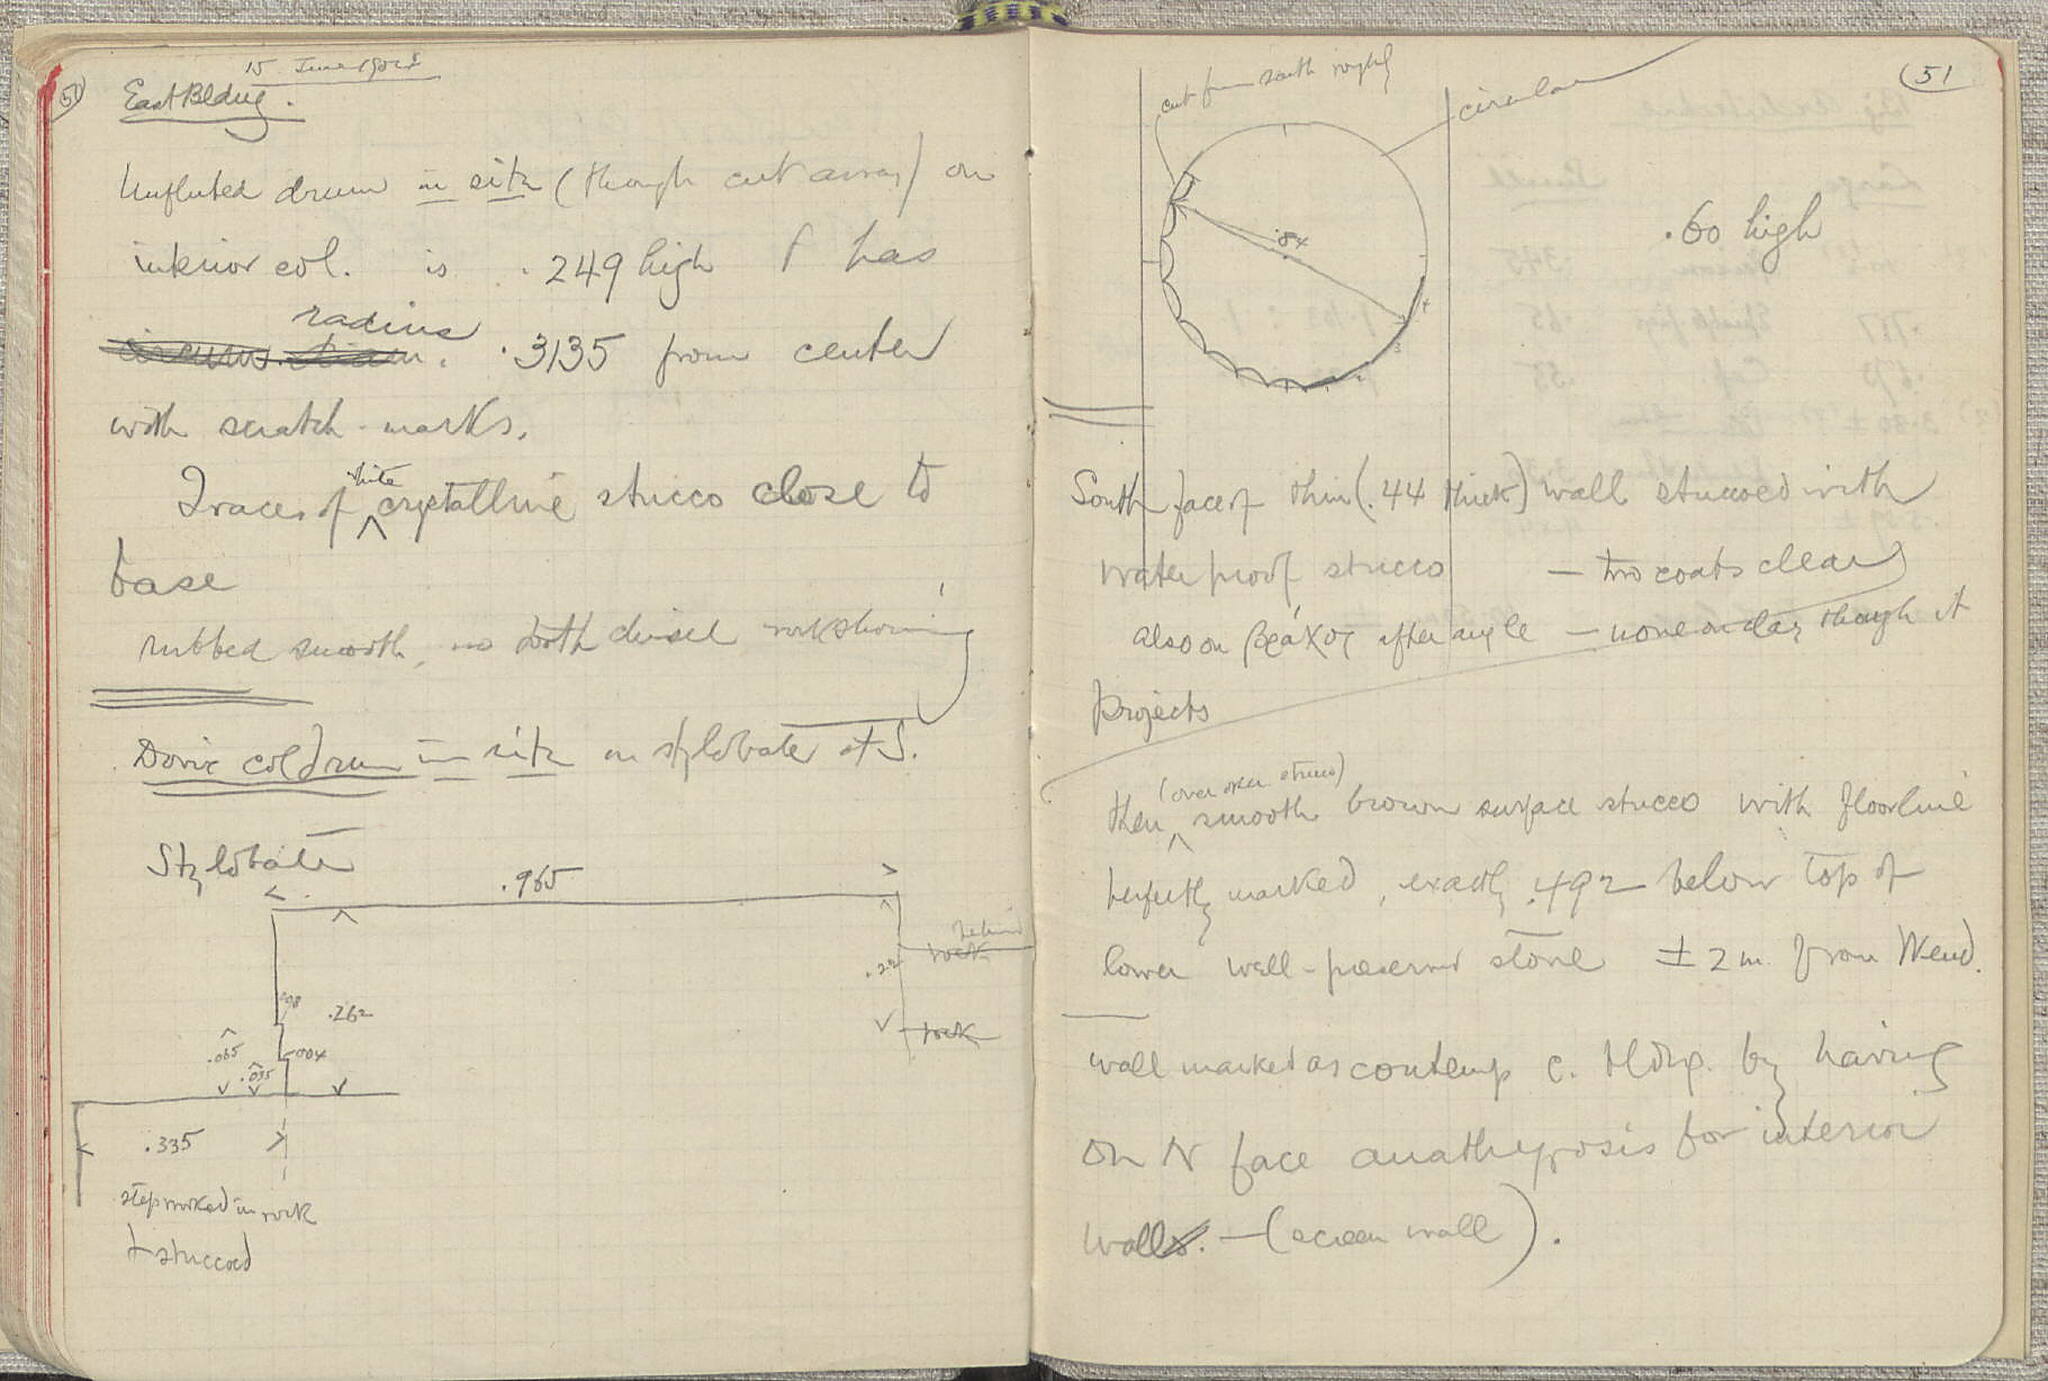 51
15 June
East Bldng.
Unfluted drum in situ (though cut away) on
interior col. is .249 high & has
radius
circums. diam. .3135 from center
with scratch-marks.
Traces of white crystalline stucco close to
base
rubbed smooth, no tooth chisel work showing
Doric col drum in situ on stylobate at S.
Stylobate
.965
behind
rock
.22
rock
.008
.262
.065
.004
.035
.335
step worked in rock
& stuccoed
51
cut from south roughly
circular
.84
.60 high
4
3
South face of thin (.44 thick) wall stuccoed with
waterproof stucco — two coats clear
also on βράχος after angle — none on clay though it
projects
(over other stucco)
then smooth brown surface stucco with floorline
perfectly marked, exactly .492 below top of
lower well-preserved stone ± 2 m. from W end.
wall marked as contemp c. bldg. by having
on N face anathyrosis for interior
walls. — (screen wall).